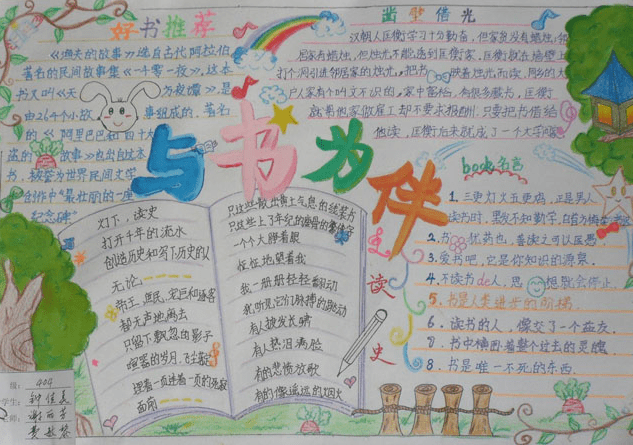 好书推荐
《渔夫的故事》选自古代阿拉伯
著名的民间故事集《一千零一夜》，这本
书又叫《天方夜谭》，是
由264个小故事组成的，著名
的《阿里巴巴和四十大
盗的故事》也出自这本
书，被誉为世界民间文学
创作中"最壮丽的一座
纪念碑"
凿壁借光
汉朝人匡衡学习十分勤奋，但家贫没有蜡烛，邻
居家有蜡烛，但烛光不能透到匡衡家，匡衡就在墙壁上
打个洞引进邻居家的烛光，把书映着烛光而读，同乡的大
户人家有个叫文不识的，家中富裕，有很多藏书，匡衡
就帮他家做雇工却不要求报酬，只要把书借给
他读，匡衡后来就成了一个大学
与书为伴
灯下，读史
打开千年的流水
创造历史和写下历史的人
无论
帝王、庶民、宠臣和逐客
都无声地离去
只留下飘忽的影子
喧嚣的岁月，飞尘
踩着一页连着一页的
面前
只这些散出黄土气息的线装书
只这些上了年纪的
一个大睁着眼
怔怔地望着我
我一册册轻轻翻动
我听见它们脉搏的跳动
有人披发长啸
有人热泪满脸
有的悲愤放歌
有的像遥远的烟火
读史
book名言
1. 三更灯火五更鸡，正是男人
读书时，黑发不知勤学早，白首方悔读书迟
2. 书犹药也，善读之可以医愚
3. 爱书吧，它是你知识的源泉
4. 不读书de人，思想就会停止。
5. 书是人类进步的阶梯。
6. 读书的人，像交了一个益友。
7. 书中横卧着整个过去的灵魂
8. 书是唯一不死的东西
级：404
学生：钟佳
师：谢丽芳